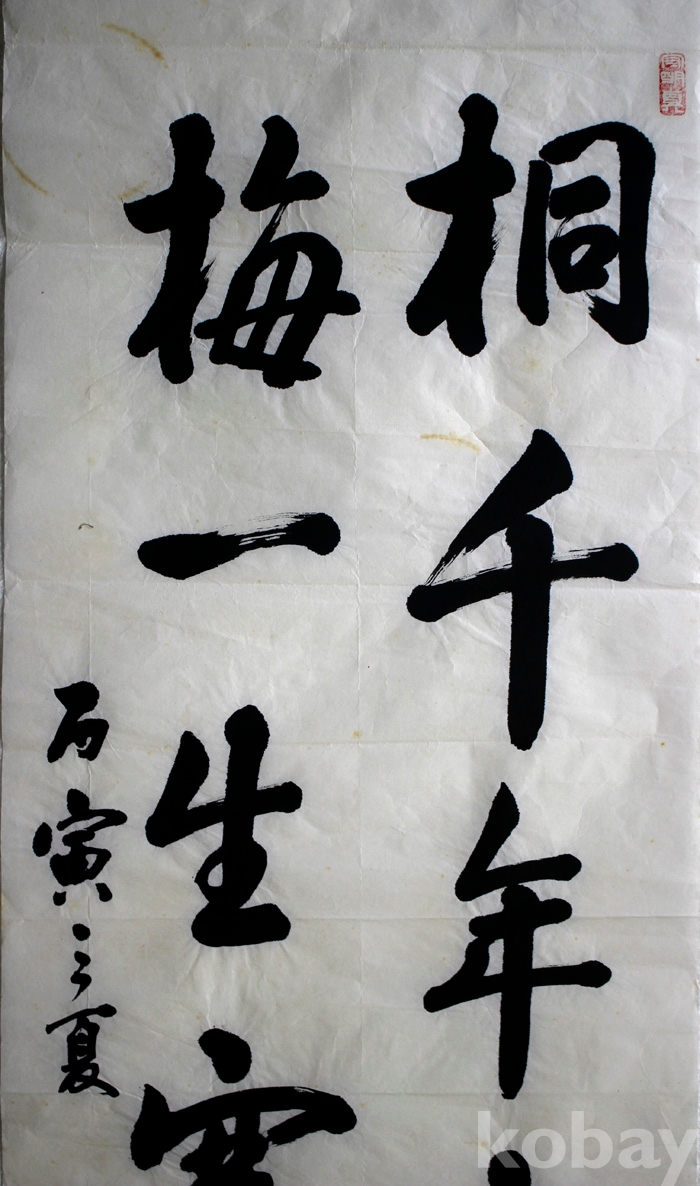 桐千年
梅一生
丙寅之夏
kobay